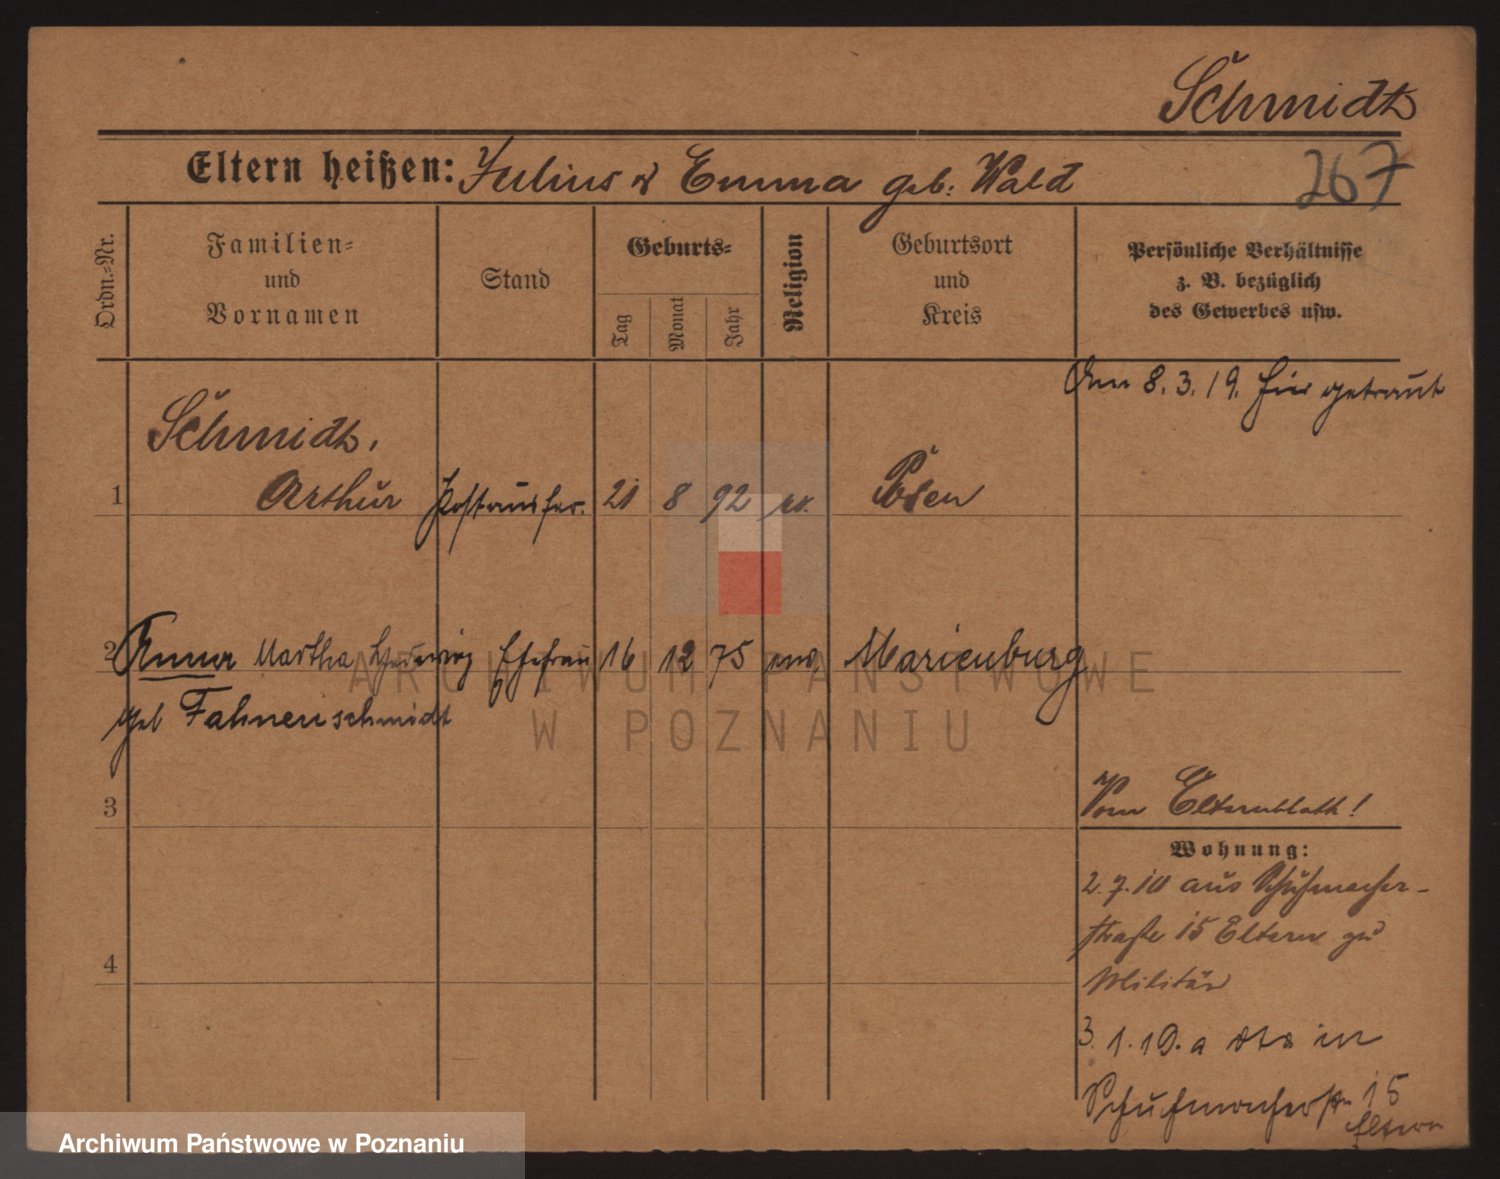 Schmidt
Eltern heißen: Julius & Emma geb. Wald
267
Ordn.=Nr.
Familien=
und
Vornamen
Stand
Geburts=
Tag
Monat
Jahr
Religion
Geburtsort
und
Kreis
Persönliche Verhältnisse
z. B. bezüglich
des Gewerbes usw.
Am 8.3.19. hier getraut
Schmidt,
1 Arthur Postaushfer. 21 8 92 ev. Posen
2 Anna Martha Hedwig Ehefrau 16 12 75 Marienburg
geb Fahnenschmidt
3
Vom Elternblatt!
Wohnung:
2.7.10 aus Schuhmacher-
straße 15 Eltern zu
Militär
4
3.1.19. a in
Schuhmacherstr 15
Eltern
ARCHIWUM PAŃSTWOWE
W POZNANIU
Archiwum Państwowe w Poznaniu